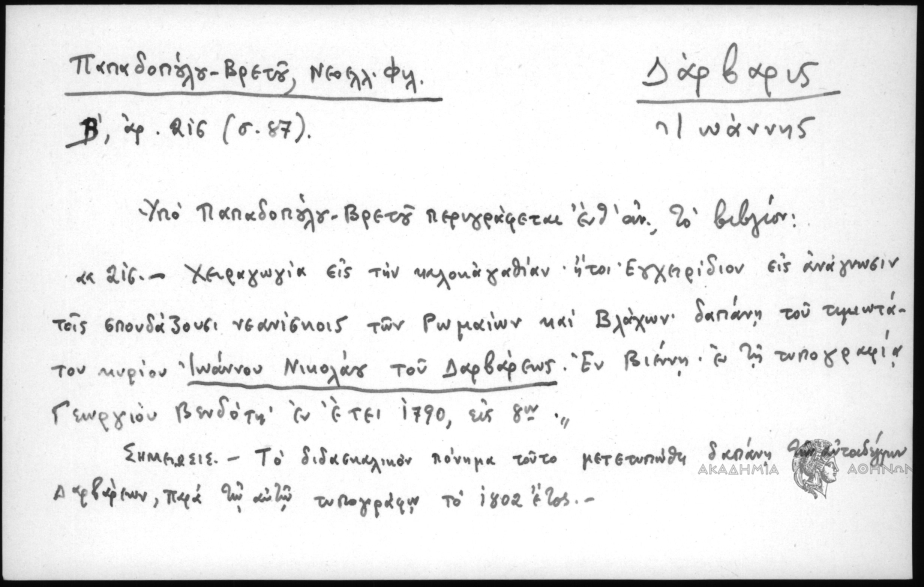 Παπαδοπούλου-Βρετοῦ, Νεοελλ. Φιλ.
Β', ἀρ. 216 (σ. 87).
Δάρβαρις
Ἰωάννης
Ὑπό Παπαδοπούλου-Βρετοῦ περιγράφεται ἐνθ' ἀν., τό βιβλίον:
« 216.— Χειραγωγία εἰς τήν καλοκἀγαθίαν· ἤτοι Ἐγχειρίδιον εἰς ἀνάγνωσιν
τοῖς σπουδάζουσι νεανίσκοις τῶν Ρωμαίων καί Βλάχων· δαπάνῃ τοῦ τιμιωτά-
του κυρίου Ἰωάννου Νικολάου τοῦ Δαρβάρεως. Ἐν Βιέννῃ· ἐν τῇ τυπογραφίᾳ
Γεωργίου Βενδότη· ἐν ἔτει 1790, εἰς 8ον.»
Σημείωσις.— Τό διδασκαλικόν πόνημα τοῦτο μετετυπώθη δαπάνῃ τῶν αὐταδέλφων
Δαρβάρεων, παρά τῷ αὐτῷ τυπογράφῳ τό 1802 ἔτος.—
ΑΚΑΔΗΜΙΑ ΑΘΗΝΩΝ